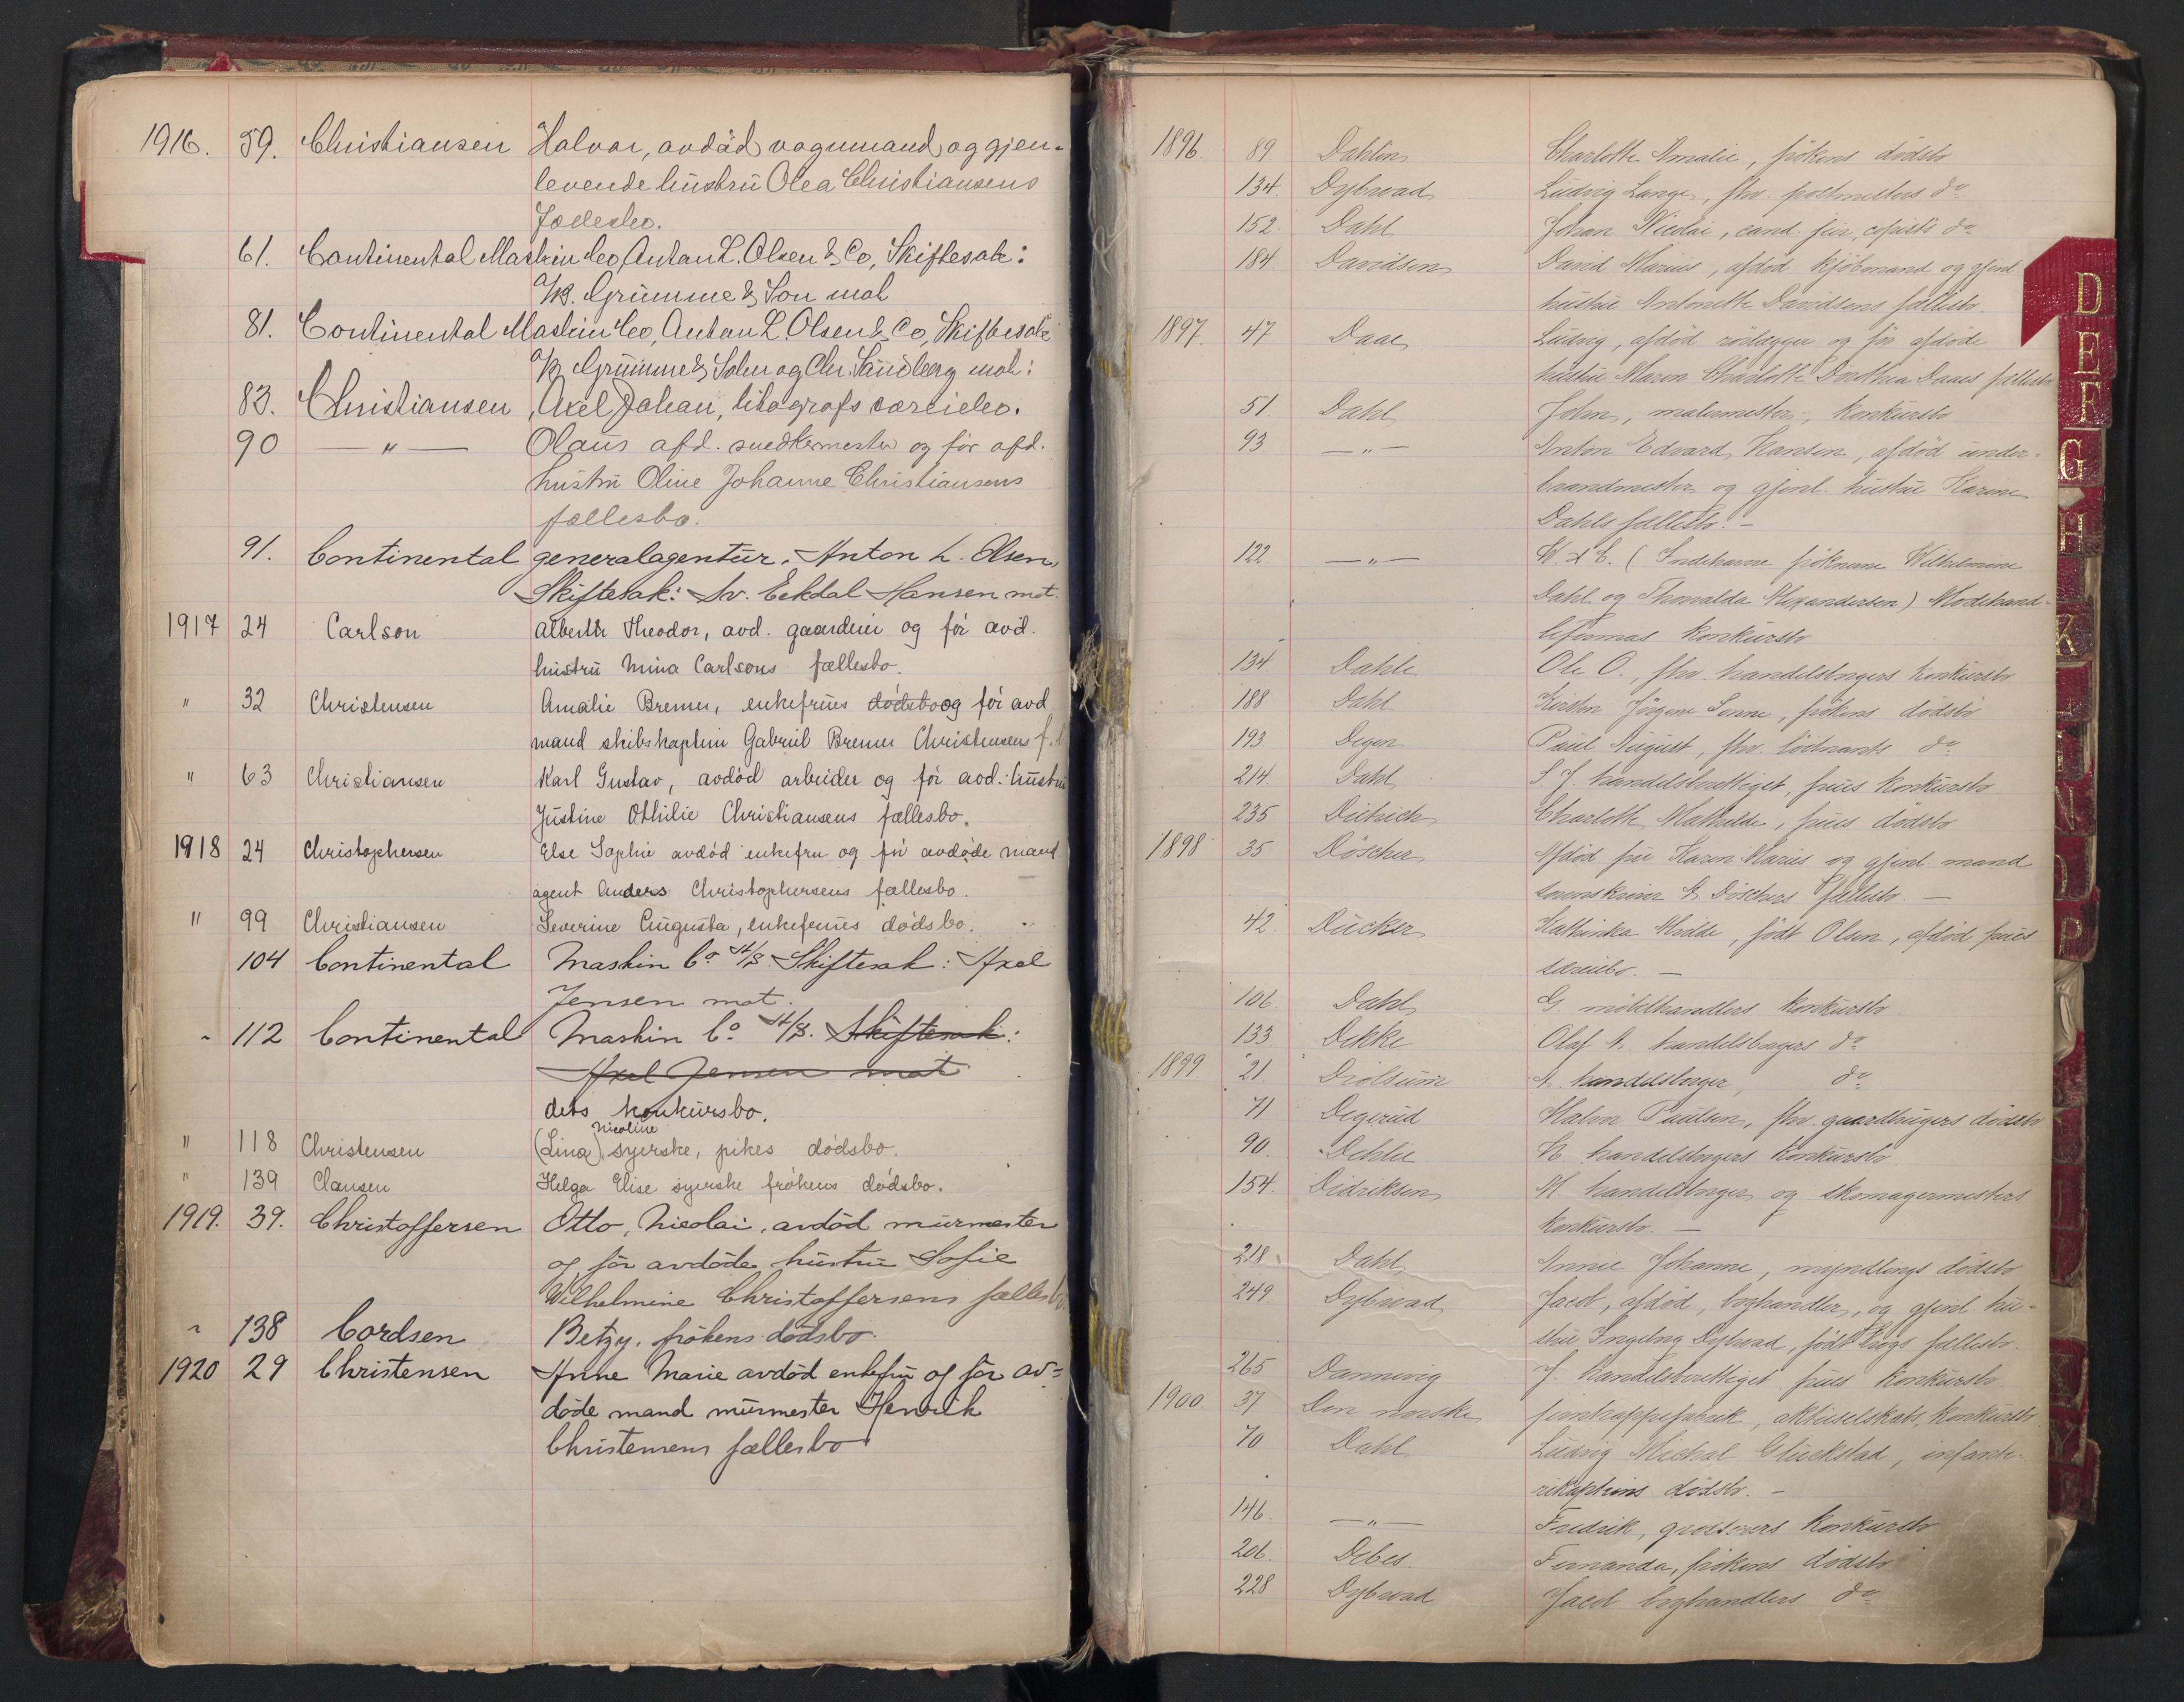 1916. 59. Christiansen Halvor, avdöd vognmand og gjen-
levende hustru Olea Christiansens
Fællesbo.
61. Continental Maskin Co, Anton L. Olsen & Co, Skiftesak:
A/S. Grumme & Son mot
81. Continental Maskin Co, Anton L. Olsen & Co, Skiftesak
A/S Grumme & Sohn og Chr. Sandberg mot:
83. Christiansen, Axel Johan, litografs særeiebo.
90 — " — Olaus afd. snedkermester og før afd.
hustru Oline Johanne Christiansens
fællesbo.
91. Continental generalagentur, Anton L. Olsen,
Skiftesak: Sv. Eekdal Hansen mot.
1917 24 Carlson Alberth Theodor, avd. gaardeier og før avd.
hustru Mina Carlsons fællesbo.
" 32 Christensen Amalie Bremer, enkefrues dødsbo og før avd.
mand skibskaptein Gabriel Bremer Christensens f.
" 63 Christiansen Karl Gustav, avdød arbeider og før avd. hustru
Justine Othilie Christiansens fællesbo.
1918 24 Christophersen Else Sophie avdød enkefru og før avdøde mand
agent Anders Christophersens fællesbo.
" 99 Christiansen Severine Augusta, enkefrues dødsbo.
104 Continental Maskin Co A/S. Skiftesak: Axel
Jensen mot.
" 112 Continental Maskin Co A/S. Skiftesak:
Axel Jensen mot
dets konkursbo.
Nicoline
" 118 Christensen (Lina), syerske, pikes dødsbo.
" 139 Clausen Helga Elise syerske frøkens dødsbo.
1919. 39. Christoffersen Otto, Nicolai, avdød murmester
og før avdøde hustru Sofie
Wilhelmine Christoffersens fællesbo.
" 138 Cordsen Betzy, frøkens dødsbo.
1920 29 Christensen Anne Marie avdød enkefru og før av=
døde mand murmester Henrik
Christensens fællesbo
1896. 89 Dahlin Charlotte Amalie, frökens dödsbo
134. Dybwad Ludvig Lange, fhv. postmesters do
152. Dahl Johan Nicolai, cand. jur, copists do
184. Davidsen David Marius, afdöd kjöbmand og gjenl.
hustru Antonette Davidsens fællesbo.
1897. 47. Daae Ludvig, afdöd rörlægger og för afdöde
hustru Maren Charlotte Dorthea Daaes fællesbo
51. Dahl John, malermester, konkursbo
93. — " — Anton Edvard Hansen, afdöd under-
brandmester og gjenl. hustru Karine
Dahls fællesbo. —
122. — " — W. & C. (Indehavere fröknerne Wilhelmine
Dahl og Thoralda Alexandersen) Modehand-
lefirmas konkursbo
134 Dahle Ole O., fhv. handelsborgers konkursbo
188 Dahl Kirsten Jörgine Sonne, frökens dödsbo
193. Degen Paul August, fhv. löitnants do
214. Dahl S. J. handelsberettiget, frues konkursbo
235 Dietrich Charlotte Mathilde, frues dödsbo
1898 35 Döscher Afdöd frue Karen Marie og gjenl. mand
A. Döschers fællesbo. —
42. Dücker Kathinka Hilda, födt Olsen, afdöd frues
særeiebo. —
106. Dahl G. möbelhandlers konkursbo
133 Dekke Olaf A. handelsborgers do
1899. 21. A. handelsborger, do
71 Degerud Halvor Paulsen, fhv. gaardbrugers dödsbo
90. Dehlie N. handelsborgers konkursbo
154. Didriksen M. handelsborger og skomagermesters
konkursbo. —
218 Dahl Annie Johanne, myndlings dödsbo
249. Dybwad Jacob, afdöd, boghandler, og gjenl. hu-
stru Ingeborg Dybwad, födt Krogs fællesbo.
265 Dannevig J. handelsberettiget frues konkursbo
1900. 37 Den norske aktieselskabs konkursbo
70 Dahl Ludvig Michal Glückstad, infante-
rikapteins dödsbo. —
146. — " — Fredrik, grosserers konkursbo
206. Debes Fernanda, frökens dödsbo
228 Dybwad Jacob boghandlers do
D
E
F
G
H
K
L
N
O
P